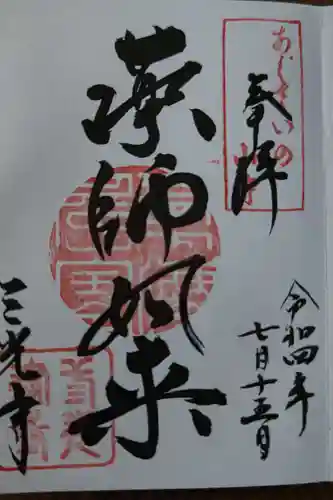 あじさいの
奉拝
令和四年
七月十五日
薬師如来
三光寺